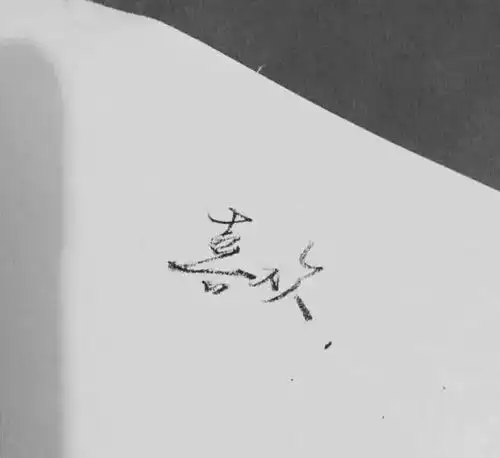 喜欢.